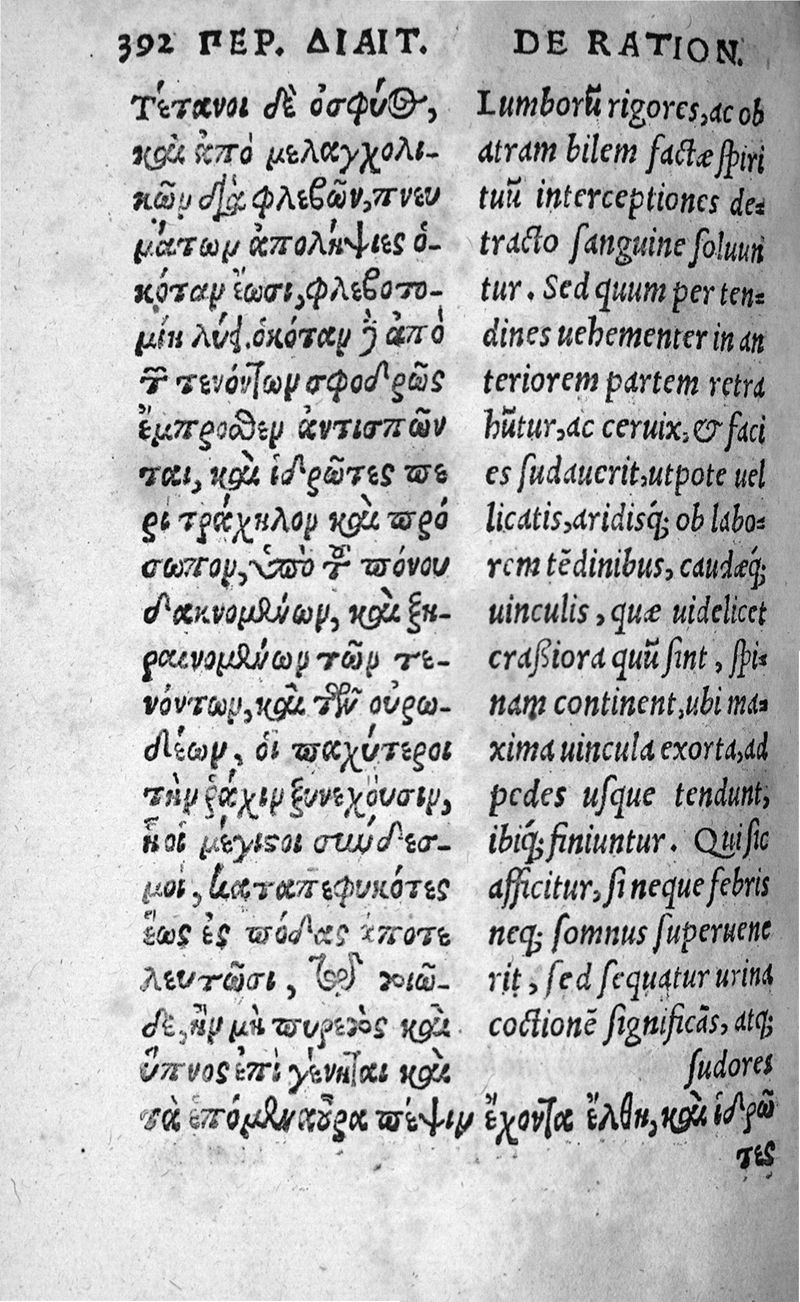 392 ΠΕΡ. ΔΙΑΙΤ.
Τέτανοι δὲ ὀσφύος,
καὶ ἀπὸ μελαγχολι-
κῶν διὰ φλεβῶν, πνευ
μάτων ἀπολήψιες ὁ-
κόταν ἔωσι, φλεβοτο-
μίη λύει. ὁκόταν δὲ ἀπὸ
τῶν τενόντων σφοδρῶς
ἔμπροσθεν ἀντισπῶν
ται, καὶ ἱδρῶτες πε
ρὶ τράχηλον καὶ πρό
σωπον, ὑπὸ τοῦ πόνου
δακνομένων, καὶ ξη-
ραινομένων τῶν τε-
νόντων, καὶ τῶν οὐρω-
δέων, οἱ παχύτεροι
τὴν ῥάχιν ξυνέχουσιν,
ᾗ οἱ μέγιστοι σύνδεσ-
μοι, καταπεφυκότες
ἕως ἐς πόδας ἀποτε
λευτῶσι,
δε, ἢν μὴ πυρετὸς καὶ
ὕπνος ἐπιγένηται καὶ
τὰ ἑπόμενα οὖρα πέψιν ἔχοντα ἔλθῃ, καὶ ἱδρῶ
τες
DE RATION.
Lumborũ rigores, ac ob
atram bilem factæ spiri
tuũ interceptiones de-
tracto sanguine soluun
tur. Sed quum per ten-
dines uehementer in an
teriorem partem retra
hũtur, ac ceruix, & faci
es sudauerit, utpote uel
licatis, aridisq́; ob labo-
rem tẽdinibus, caudæq́;
uinculis, quæ uidelicet
craßiora quũ sint, spi-
nam continent, ubi ma-
xima uincula exorta, ad
pedes usque tendunt,
ibiq́; finiuntur. Qui sic
afficitur, si neque febris
neq; somnus superuene
rit, sed sequatur urina
coctionẽ significãs, atq;
sudores